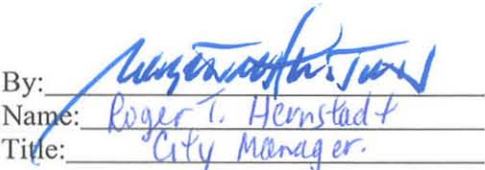 By:
Name: Roger T. Hernstadt
Title: City Manager.